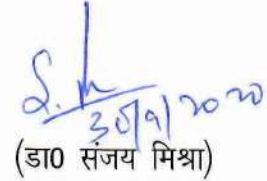 30/9/2020
(डा0 संजय मिश्रा)